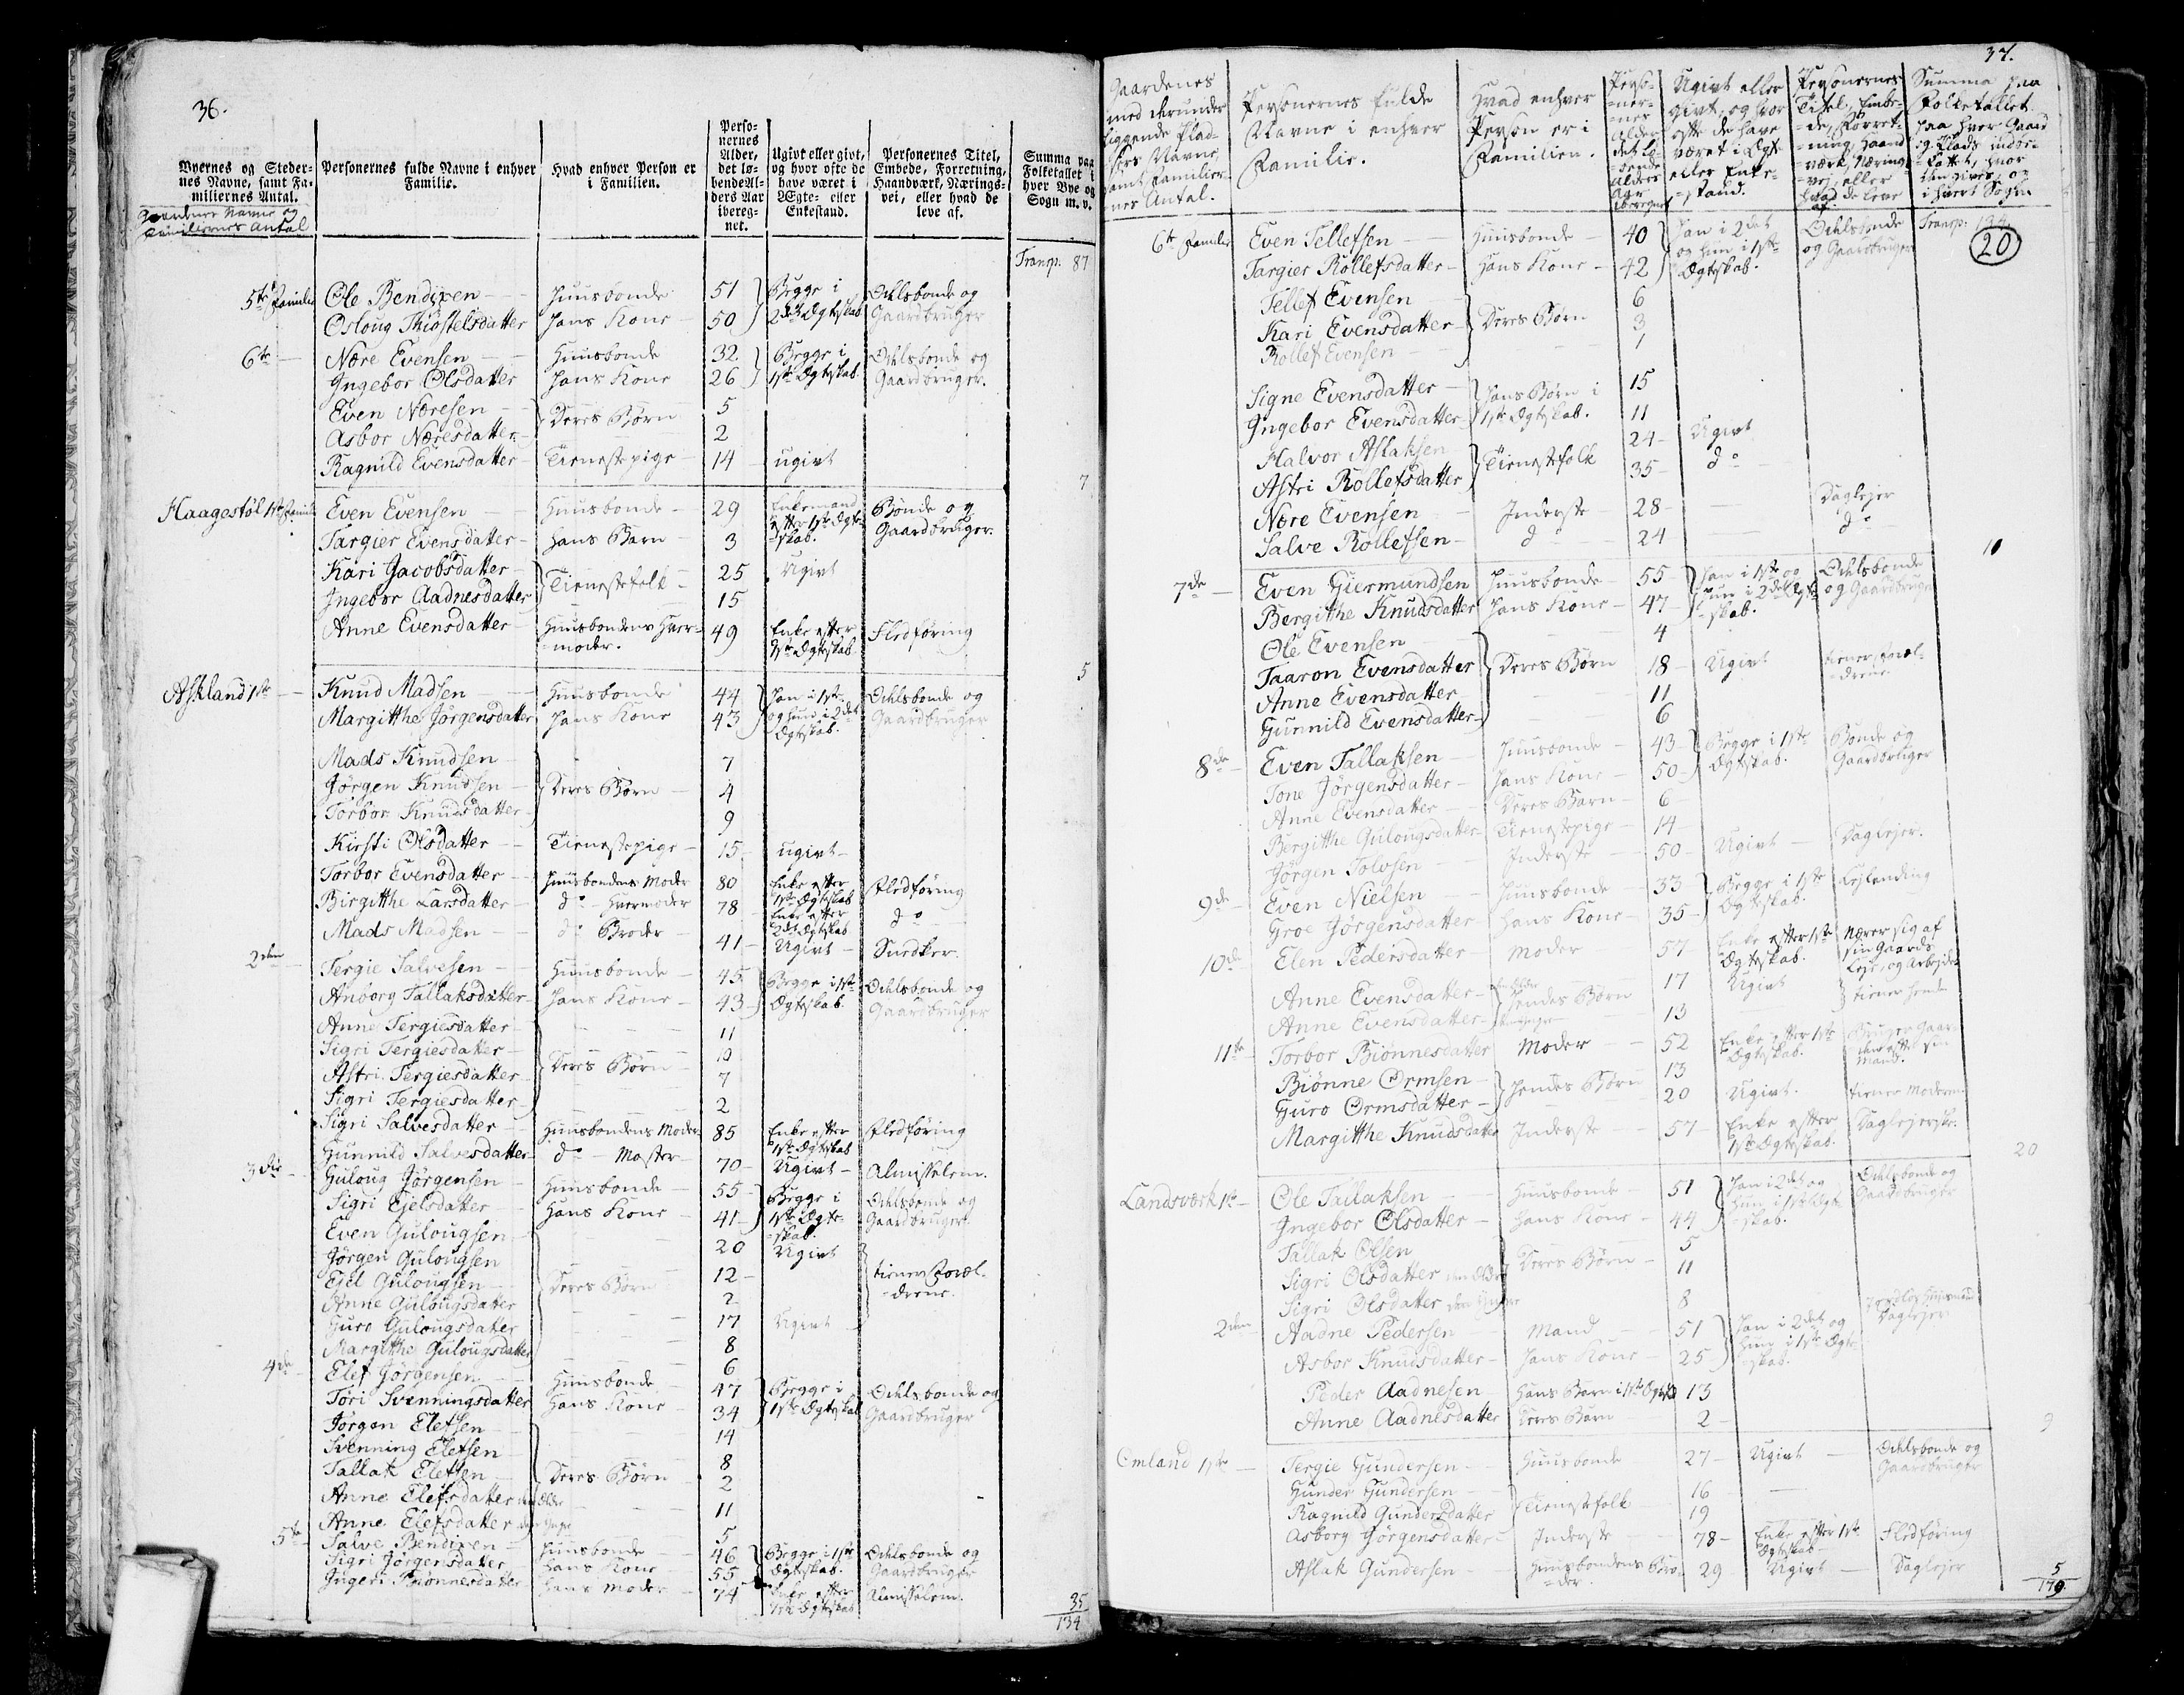 36.
Byernes og Steder-
nes Navne, samt Fa-
miliernes Antal.
Gaardenes Navne og
Familiernes Antal
Personernes fulde Navne i enhver
Familie.
Hvad enhver Person er
i Familien.
Perso-
nernes
Alder,
det lø-
bende Al-
ders Aar
iberegnet.
Ugivt eller givt,
og hvor ofte de
have været i
Ægte- eller
Enkestand.
Personernes Titel,
Embede, Forretning,
Haandværk, Nærings-
vei, eller hvad de
leve af.
Summa paa
Folketallet i
hver Bye og
Sogn m. v.
Transp. 87
5te Familie Ole Bendixen Huusbonde 51 Begge i Odelsbonde og
Osloug Thiostelsdatter Hans Kone 50 2det Ægteskab Gaardbruger
6te Nære Evensen Huusbonde 32 Begge i Odelsbonde og
Ingebor Olsdatter Hans Kone 26 1ste Ægteskab. Gaardbruger.
Even Næresen Deres Børn 5
Asbor Næresdatter 2
Ragnild Evensdatter Tienestepige 14 ugivt
7
Haagestøl 1ste Familie Even Evensen Huusbonde 29 Enkemand Bonde og
efter 1ste Ægte- Gaardbruger.
skab.
Targier Evensdatter Hans Barn 3
Kari Jacobsdatter Tienestefolk 25 Ugivt
Ingebor Aadnesdatter 15
Anne Evensdatter Huusbondens Hver- 49 Enke efter Fledføring
moder. 1ste Ægteskab
5
Askland 1ste Knud Madsen Huusbonde 44 Han i 1ste Odelsbonde og
Margitthe Jørgensdatter Hans Kone 43 og hun i 2det Gaardbruger
Ægteskab.
Mads Knudsen 7
Jørgen Knudsen Deres Børn 4
Torbor Knudsdatter 9
Kirsti Olsdatter Tienestepige 15 ugivt
Torbor Evensdatter Huusbondens Moder 80 Enke efter Fledføring
1ste Ægteskab
Birgitthe Larsdatter do Hvermoder 78 Enke efter do
2det Ægteskab
Mads Madsen do Broder 41 Ugivt Snedker.
2den Tergie Salvesen Huusbonde 45 Begge i 1ste Odelsbonde og
Anborg Tallaksdatter Hans Kone 43 Ægteskab. Gaardbruger
Anne Tergiesdatter 11
Sigri Tergiesdatter Deres Børn 10
Astri Tergiesdatter 7
Sigri Tergiesdatter 2
Sigri Salvesdatter Huusbondens Moder 85 Enke efter Fledføring
1ste Ægteskab
Gunnild Salvesdatter do Moster 70 Ugivt Almisselem.
3die Guloug Jørgensen Huusbonde 55 Begge i Odelsbonde og
Sigri Ejelsdatter Hans Kone 41 1ste Ægte- Gaardbruger.
skab.
Even Gulougsen 20 Ugivt
Jørgen Gulougsen 12 tiener Foræl-
Ejel Gulougsen Deres Børn 2 drene.
Anne Gulougsdatter 17 Ugivt
Guro Gulougsdatter 8
Margitthe Gulougsdatter 6
4de Elef Jørgensen Huusbonde 47 Begge i Odelsbonde og
Tori Svenningsdatter Hans Kone 34 1ste Ægteskab Gaardbruger
Jørgen Elefsen 14
Svenning Elefsen 8
Tallak Elefsen Deres Børn 2
Anne Elefsdatter den Ældre 11
Anne Elefsdatter den Yngre 5
5te Salve Bendixen Huusbonde 46 Begge i 1ste Odelsbonde og
Sigri Jørgensdatter Hans Kone 55 Ægteskab. Gaardbruger
Ingeri Biønnesdatter Hans Moder 74 Enke efter Almisselem.
1ste Ægteskab
35
134
37.
Gaardenes
med derunder
liggende Plad-
sers Navne,
samt Familier-
nes Antal.
Personernes fulde
Navne i enhver
Familie.
Hvad enhver
Person er i
Familien.
Perso-
ner-
nes
Alder
det lø-
bende
Alders
Aar
iberegnet
Ugivt eller
givt, og hvor
ofte de have
været i Ægte
eller Enke-
stand.
Personernes
Titel, Embe-
de, Forret-
ning, Haand-
værk, Nærings-
vej, eller
hvad de leve
af.
Summa paa
Folketallet
paa hver Gaard
og Plads indbe-
fattet, hvor
den gives, og
i hvert Sogn
Transp: 134
20
6te Familie Even Tellefsen Huusbonde 40 Han i 2det Odelsbonde
og hun i 1ste og Gaardbruger
Targier Rollefsdatter Hans Kone 42 Ægteskab.
Tellef Evensen 6
Kari Evensdatter Deres Børn 3
Rollef Evensen 1
Signe Evensdatter Hans Børn i 15
Ingebor Evensdatter 1ste Ægteskab. 11
Halvor Aslaksen Tienestefolk 24 Ugivt
Astri Rollefsdatter 35 do
Nære Evensen Inderste 28 Daglejer
Salve Rollefsen do 24 do
11
7de Even Giermundsen Huusbonde 55 Han i 1ste og Odelsbonde
Bergitthe Knudsdatter Hans Kone 47 hun i 2det Ægte- og Gaardbruger
skab.
Ole Evensen 4
Taaron Evensdatter Deres Børn 18 Ugivt tiener Foræl-
drene
Anne Evensdatter 11
Gunnild Evensdatter 6
8de Even Tallaksen Huusbonde 43 Begge i 1ste Bonde og
Tone Jørgensdatter Hans Kone 50 Ægteskab. Gaardbruger
Anne Evensdatter Deres Barn 6
Bergitthe Gulougsdatter Tienestepige 14
Jørgen Tolvsen Inderste 50 Ugivt Daglejer.
9de Even Nielsen Huusbonde 33 Begge i 1ste Leylending
Groe Jørgensdatter Hans Kone 35 Ægteskab.
10de Elen Pedersdatter Moder 57 Enke efter 1ste Nærer sig af
Ægteskab. sin Gaards
Leje, og Arbejde
Anne Evensdatter den Ældre Hendes Børn 17 Ugivt tiener hende
Anne Evensdatter den Yngre 13
11te Torbor Biønnesdatter Moder 52 Enke efter 1ste Bruger Gaar-
Ægteskab. den efter sin
Mand.
Biønne Ormsen Hendes Børn 13
Guro Ormsdatter 20 Ugivt. tiener Moderen
Margitthe Knudsdatter Inderste 57 Enke efter Daglejerske.
1ste Ægteskab.
20
Landsværk 1ste Ole Tallaksen Huusbonde 51 Han i 2det og Odelsbonde og
Ingebor Olsdatter Hans Kone 44 hun i 1ste Ægte- Gaardbruger
skab.
Tallak Olsen 5
Sigri Olsdatter den Ældre Deres Børn 11
Sigri Olsdatter den Yngre 8
2den Aadne Pedersen Mand 51 Han i 2det og Huusmand
Asbor Knudsdatter Hans Kone 25 hun i 1ste Ægte- Daglejer
skab.
Peder Aadnesen Hans Barn i 1ste Ægteskab 13
Anne Aadnesdatter Deres Barn 2
9
Omland 1ste Tergie Gundersen Huusbonde 27 Ugivt Odelsbonde og
Gaardbruger
Gunder Gundersen Tienestefolk 16
Ragnild Gundersdatter 19
Asborg Jørgensdatter Inderste 78 Enke efter 1ste Fledføring
Ægteskab
Aslak Gundersen Huusbondens Bro- 29 Ugivt Daglejer
der.
5
179